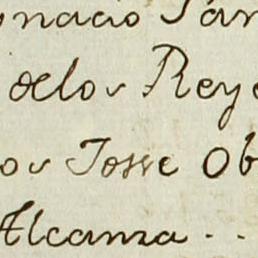 gnacio Par
delos Reye
os Josse Ob
Alcanza..